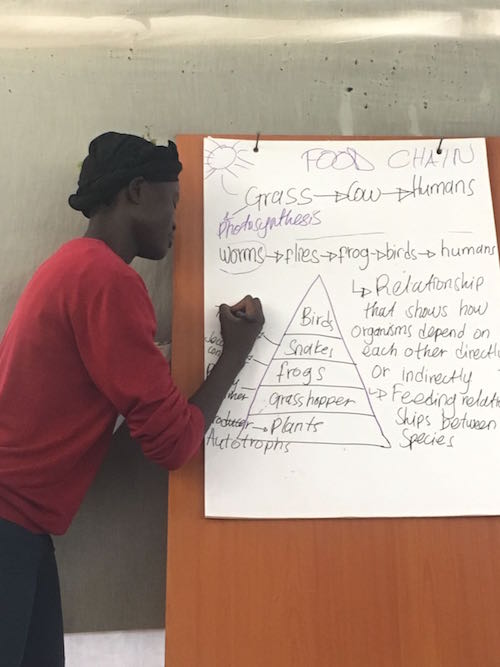 FOOD CHAIN
Grass → Cow → Humans
Photosynthesis
worms → flies → frog → birds → humans
↳ Relationship
that shows how
organisms depend on
each other directly
or indirectly
↳ Feeding relation
ships between
Species
Birds
Snakes
frogs
Grasshopper
Producer → Plants
Autotrophs